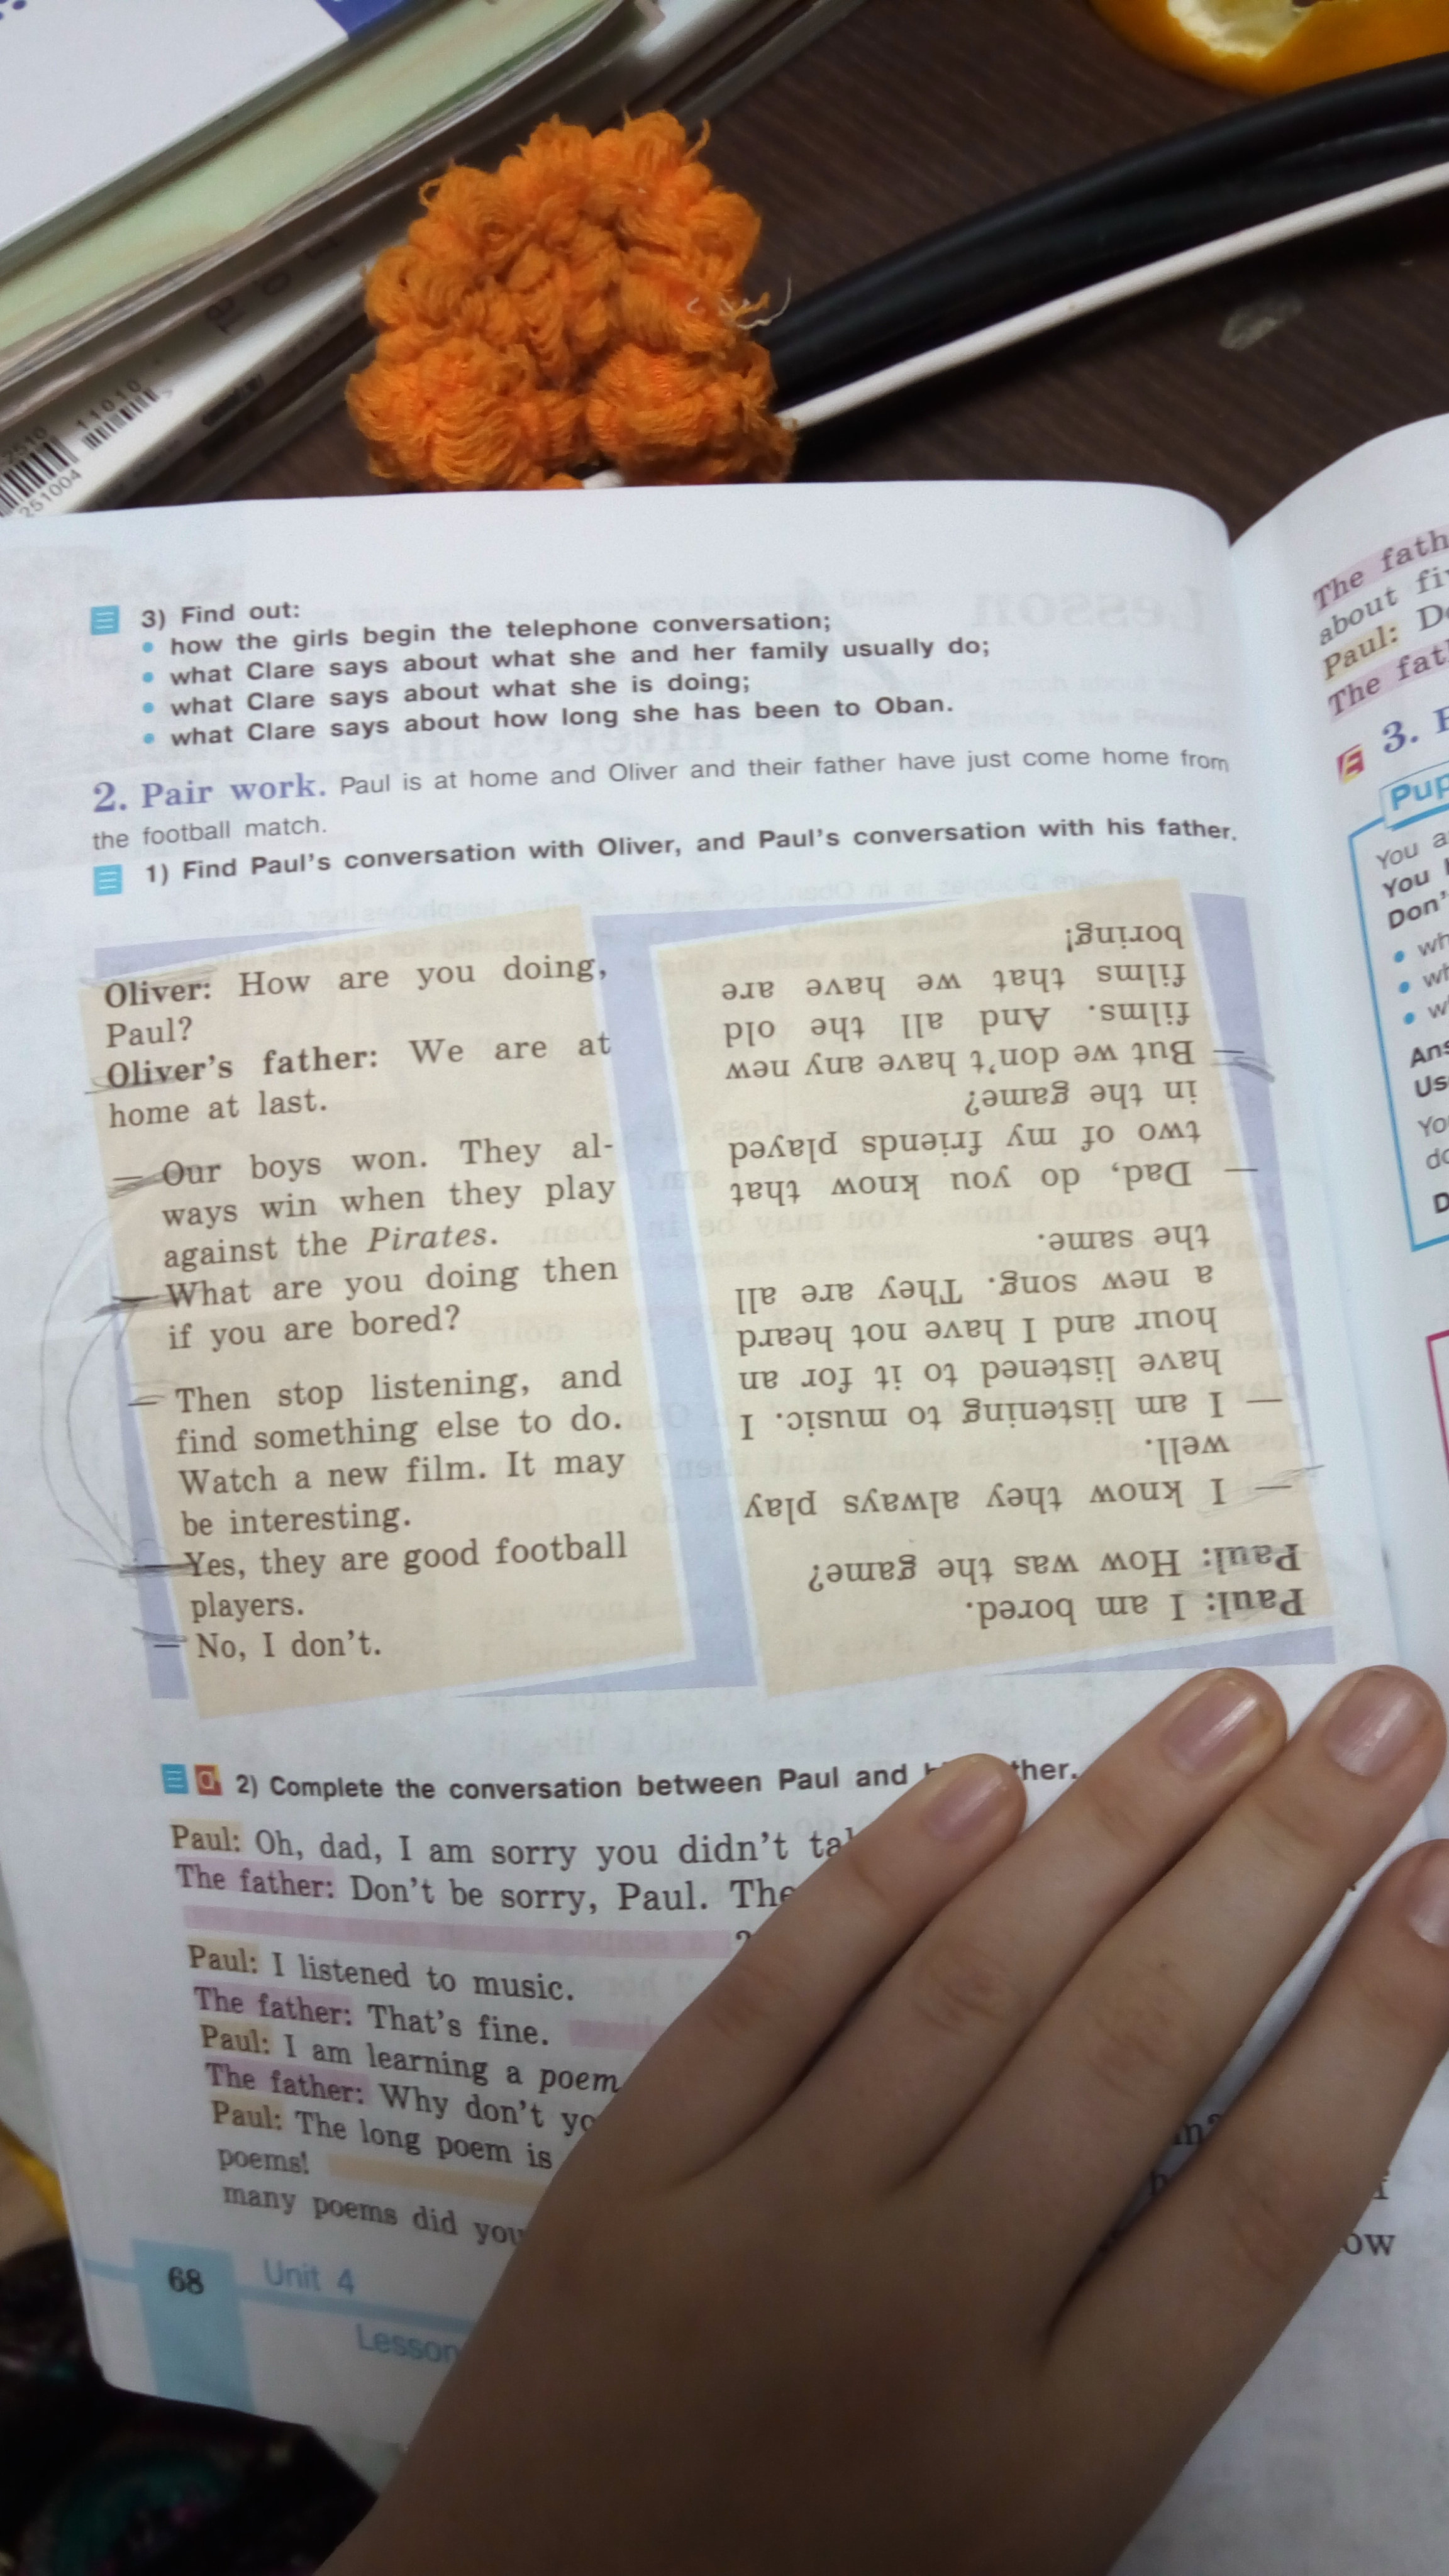 2510
11010
251004
3) Find out:
• how the girls begin the telephone conversation;
• what Clare says about what she and her family usually do;
• what Clare says about what she is doing;
• what Clare says about how long she has been to Oban.
2. Pair work. Paul is at home and Oliver and their father have just come home from
the football match.
1) Find Paul's conversation with Oliver, and Paul's conversation with his father.
Oliver: How are you doing,
Paul?
Oliver's father: We are at
home at last.
— Our boys won. They al-
ways win when they play
against the Pirates.
— What are you doing then
if you are bored?
— Then stop listening, and
find something else to do.
Watch a new film. It may
be interesting.
— Yes, they are good football
players.
— No, I don't.
Paul: I am bored.
Paul: How was the game?
— I know they always play
well.
— I am listening to music. I
have listened to it for an
hour and I have not heard
a new song. They are all
the same.
— Dad, do you know that
two of my friends played
in the game?
— But we don't have any new
films. And all the old
films that we have are
boring!
2) Complete the conversation between Paul and
Paul: Oh, dad, I am sorry you didn't
The father: Don't be sorry, Paul.
?
Paul: I listened to music.
The father: That's fine.
Paul: I am learning a poem
The father: Why don't
Paul: The long poem is
poems!
many poems did you
68
Unit 4
Lesson
The
about
Paul:
The
3.
You
You
Don't
•
•
•